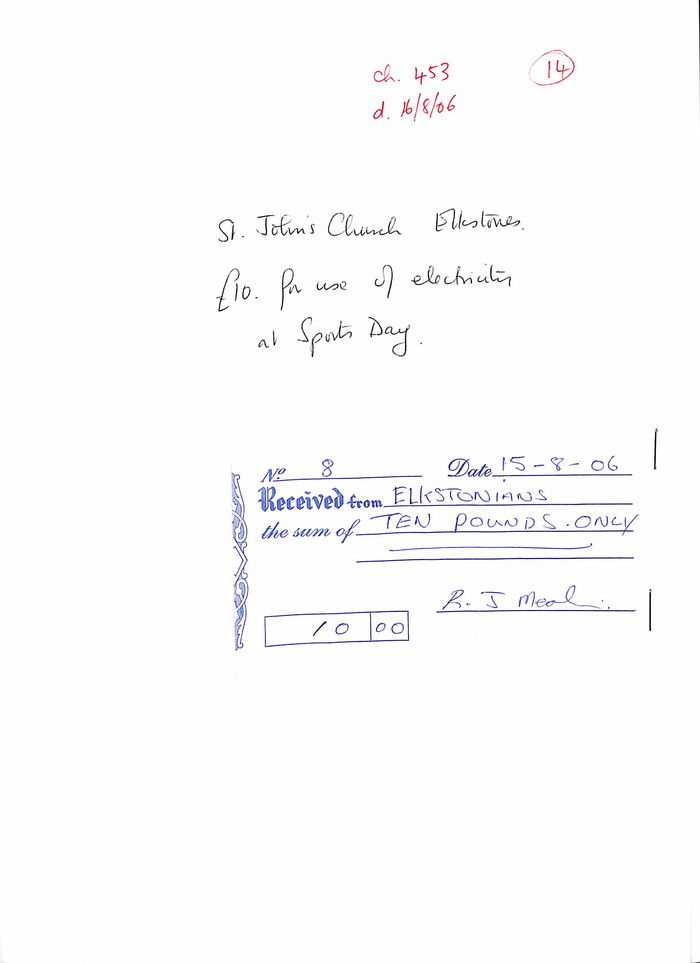 ch. 453
14
d. 16/8/06
St. John's Church Elkstones.
£10. for use of electricity
at Sports Day.
No 8 Date 15-8-06
Received from ELKSTONIANS
the sum of TEN POUNDS. ONLY
R. J
10 00